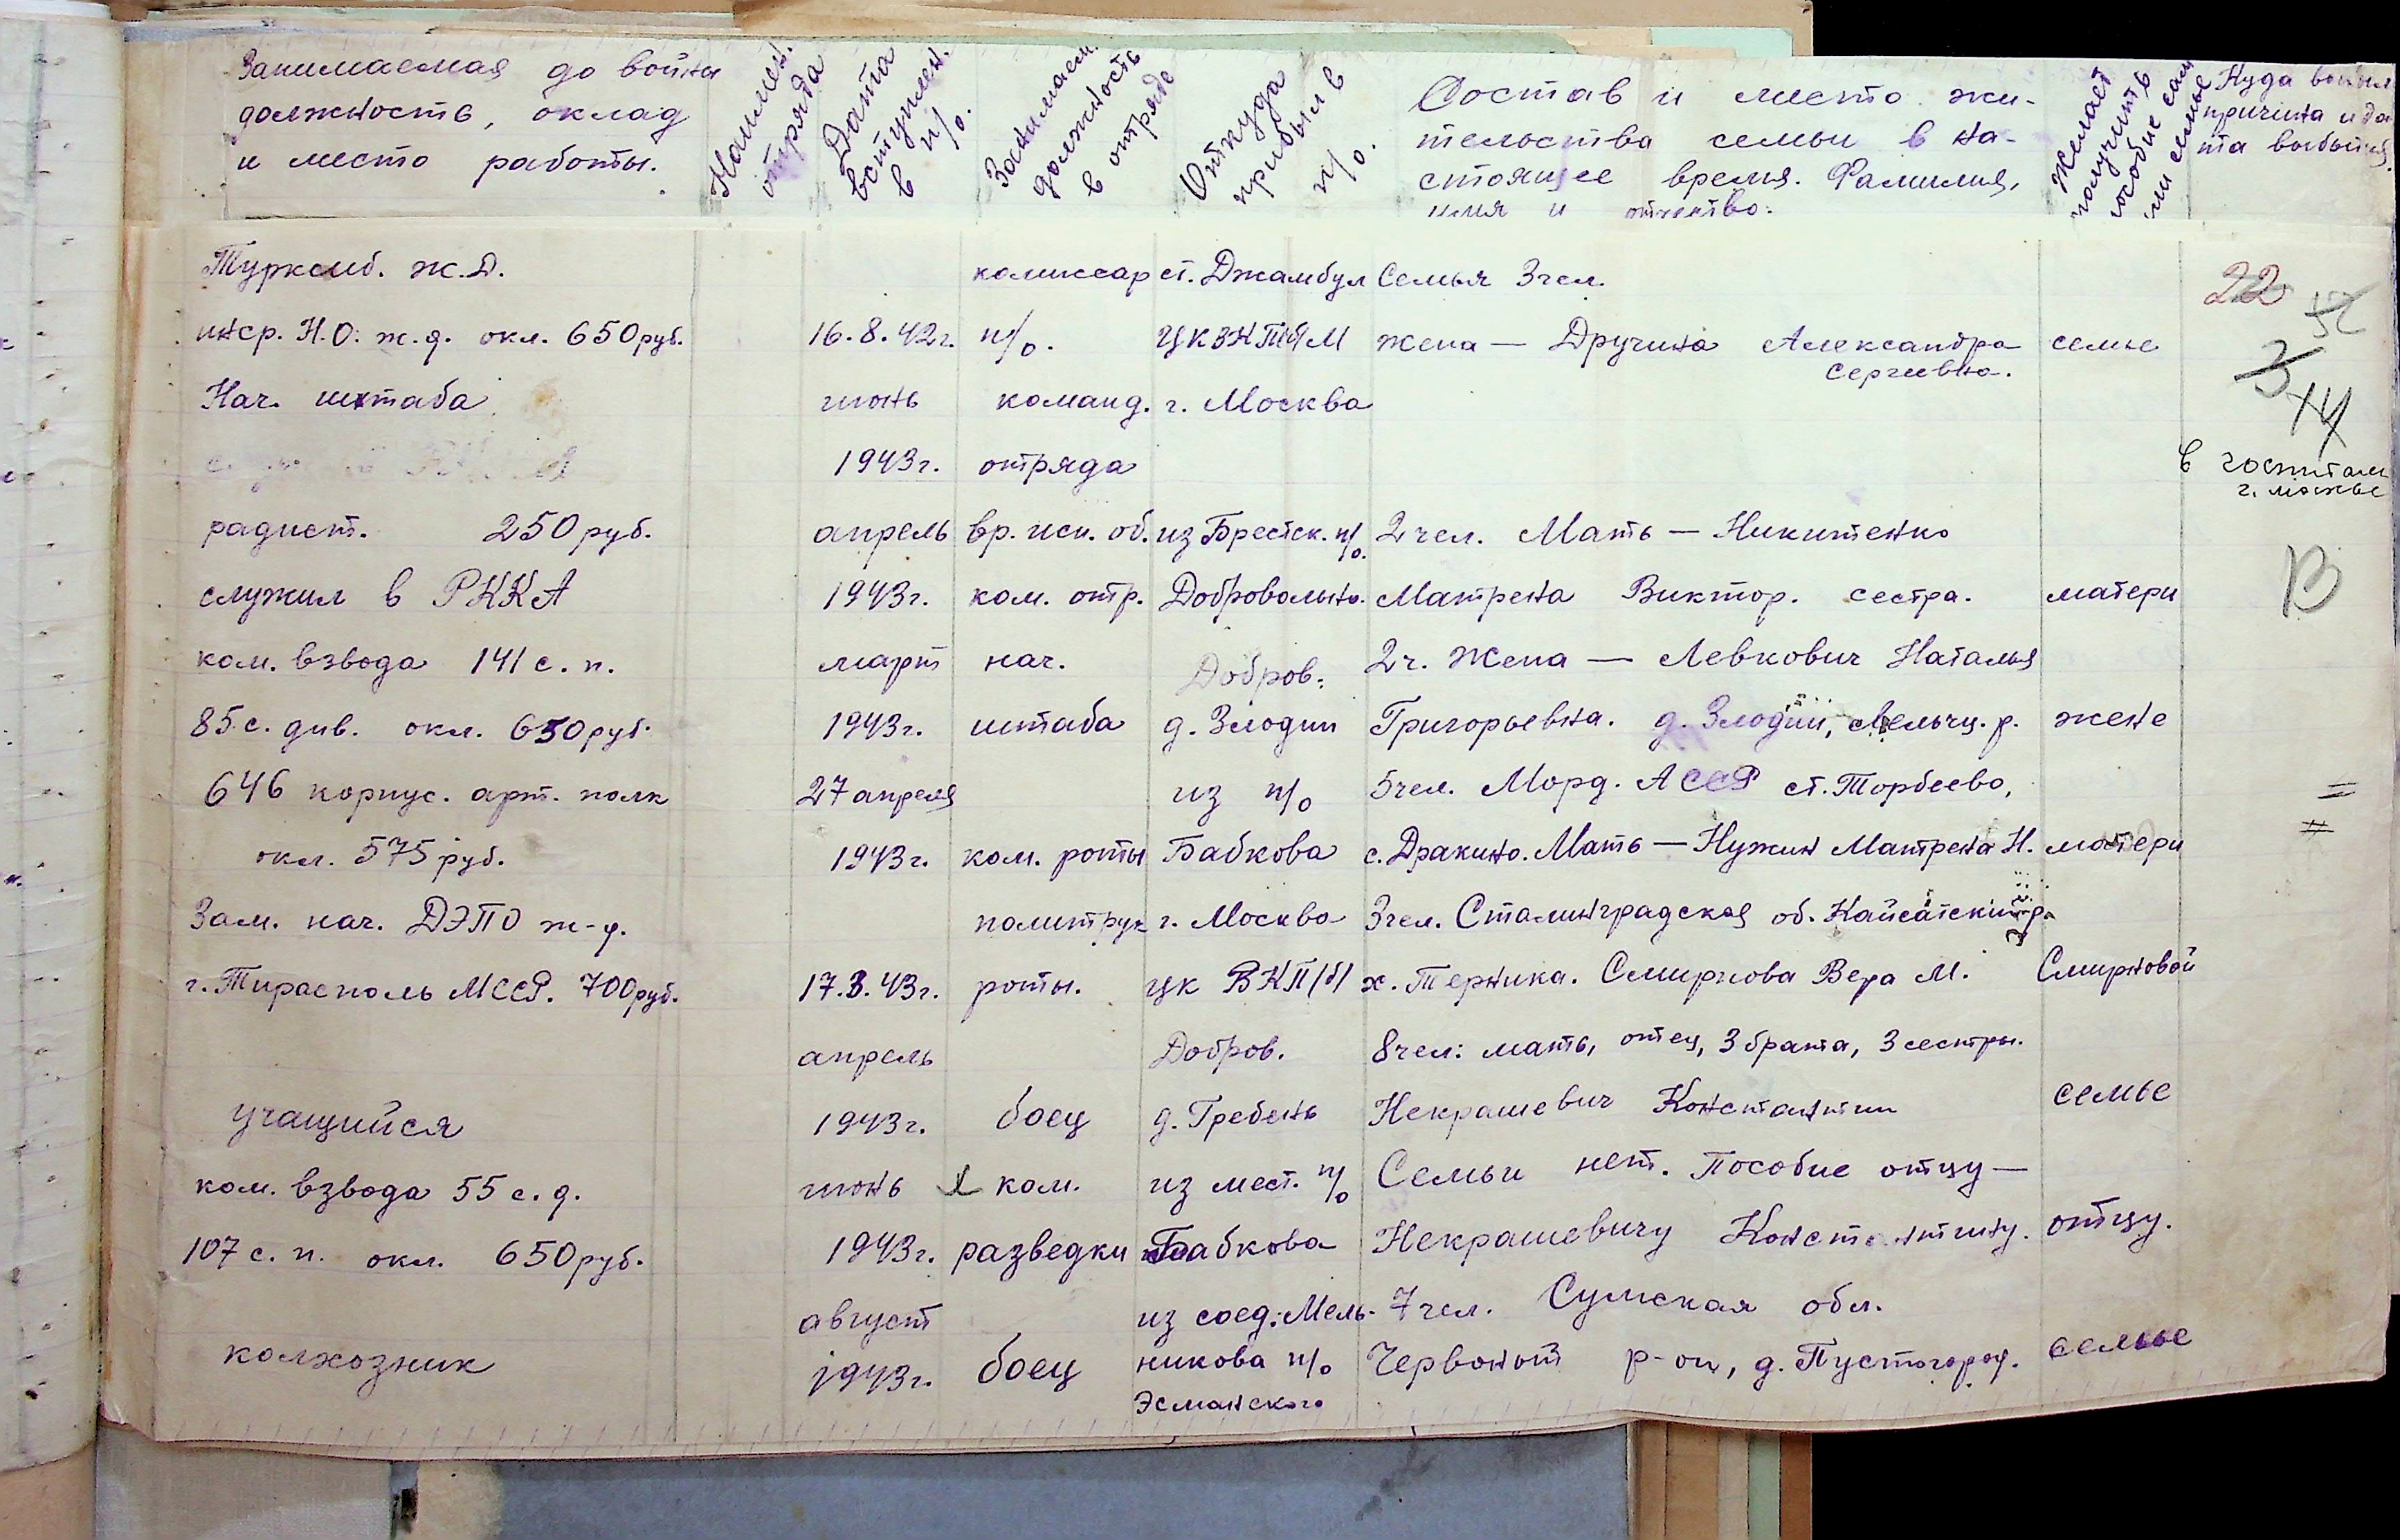 Занимаемая до войны
должность, оклад
и место работы.
Наимен.
отряда
Дата
вступлен.
в п/о.
Занимаем.
должность
в отряде
Откуда
прибыл в
п/о.
Состав и место жи-
тельства семьи в на-
стоящее время. Фамилия,
имя и отчество.
Желает
получить
пособие сам
или семье
Куда выбыл
причина и да
та выбытия.
Турксиб. ж.д. комиссар ст. Джамбул Семья 3 чел. 22
инср. Н.О. ж.д. окл. 650 руб. 16.8.42г. п/о. ЦК ВКП(б)М жена — Дручина Александра семье
Сергеевна.
Нач. штаба июнь команд. г. Москва 14
1943г. отряда в госпитале
г. Москве
радист. 250 руб. апрель вр. исп. об. из Брестск. п/о. 2 чел. Мать — Никитенко
служил в РККА 1943г. ком. отр. Добровольно. Матрена Виктор. сестра. матери В
ком. взвода 141 с. п. март нач. Добров. 2 ч. Жена — Левкович Наталья
85 с. див. окл. 650 руб. 1943г. штаба д. Злодин Григорьевна. д. Злодин, Мельчц. р. жене
646 корпус. арт. полк 27 апреля из п/о 5 чел. Морд. АССР ст. Торбеево,
окл. 575 руб. 1943г. ком. роты Бабкова с. Дракино. Мать — Нужин Матрена Н. матери
Зам. нач. ДЭПО ж-д. политрук г. Москва 3 чел. Сталинградская об. Кайсатский р.
г. Тирасполь МССР. 700 руб. 17.3.43г. роты. ЦК ВКП/б/ х. Терника. Смирнова Вера М. Смирновой
апрель Добров. 8 чел: мать, отец, 3 брата, 3 сестры.
учащийся 1943г. боец д. Гребень Некрашевич Константин семье
ком. взвода 55 с. д. июнь х ком. из мест. п/о Семьи нет. Пособие отцу —
107 с. п. окл. 650 руб. 1943г. разведки Бабкова Некрашевичу Константину. отцу.
август из соед. Мель- 7 чел. Сумская обл.
колхозник 1943г. боец никова п/о Червонот р-он, д. Пустогород. семье
Эсманского